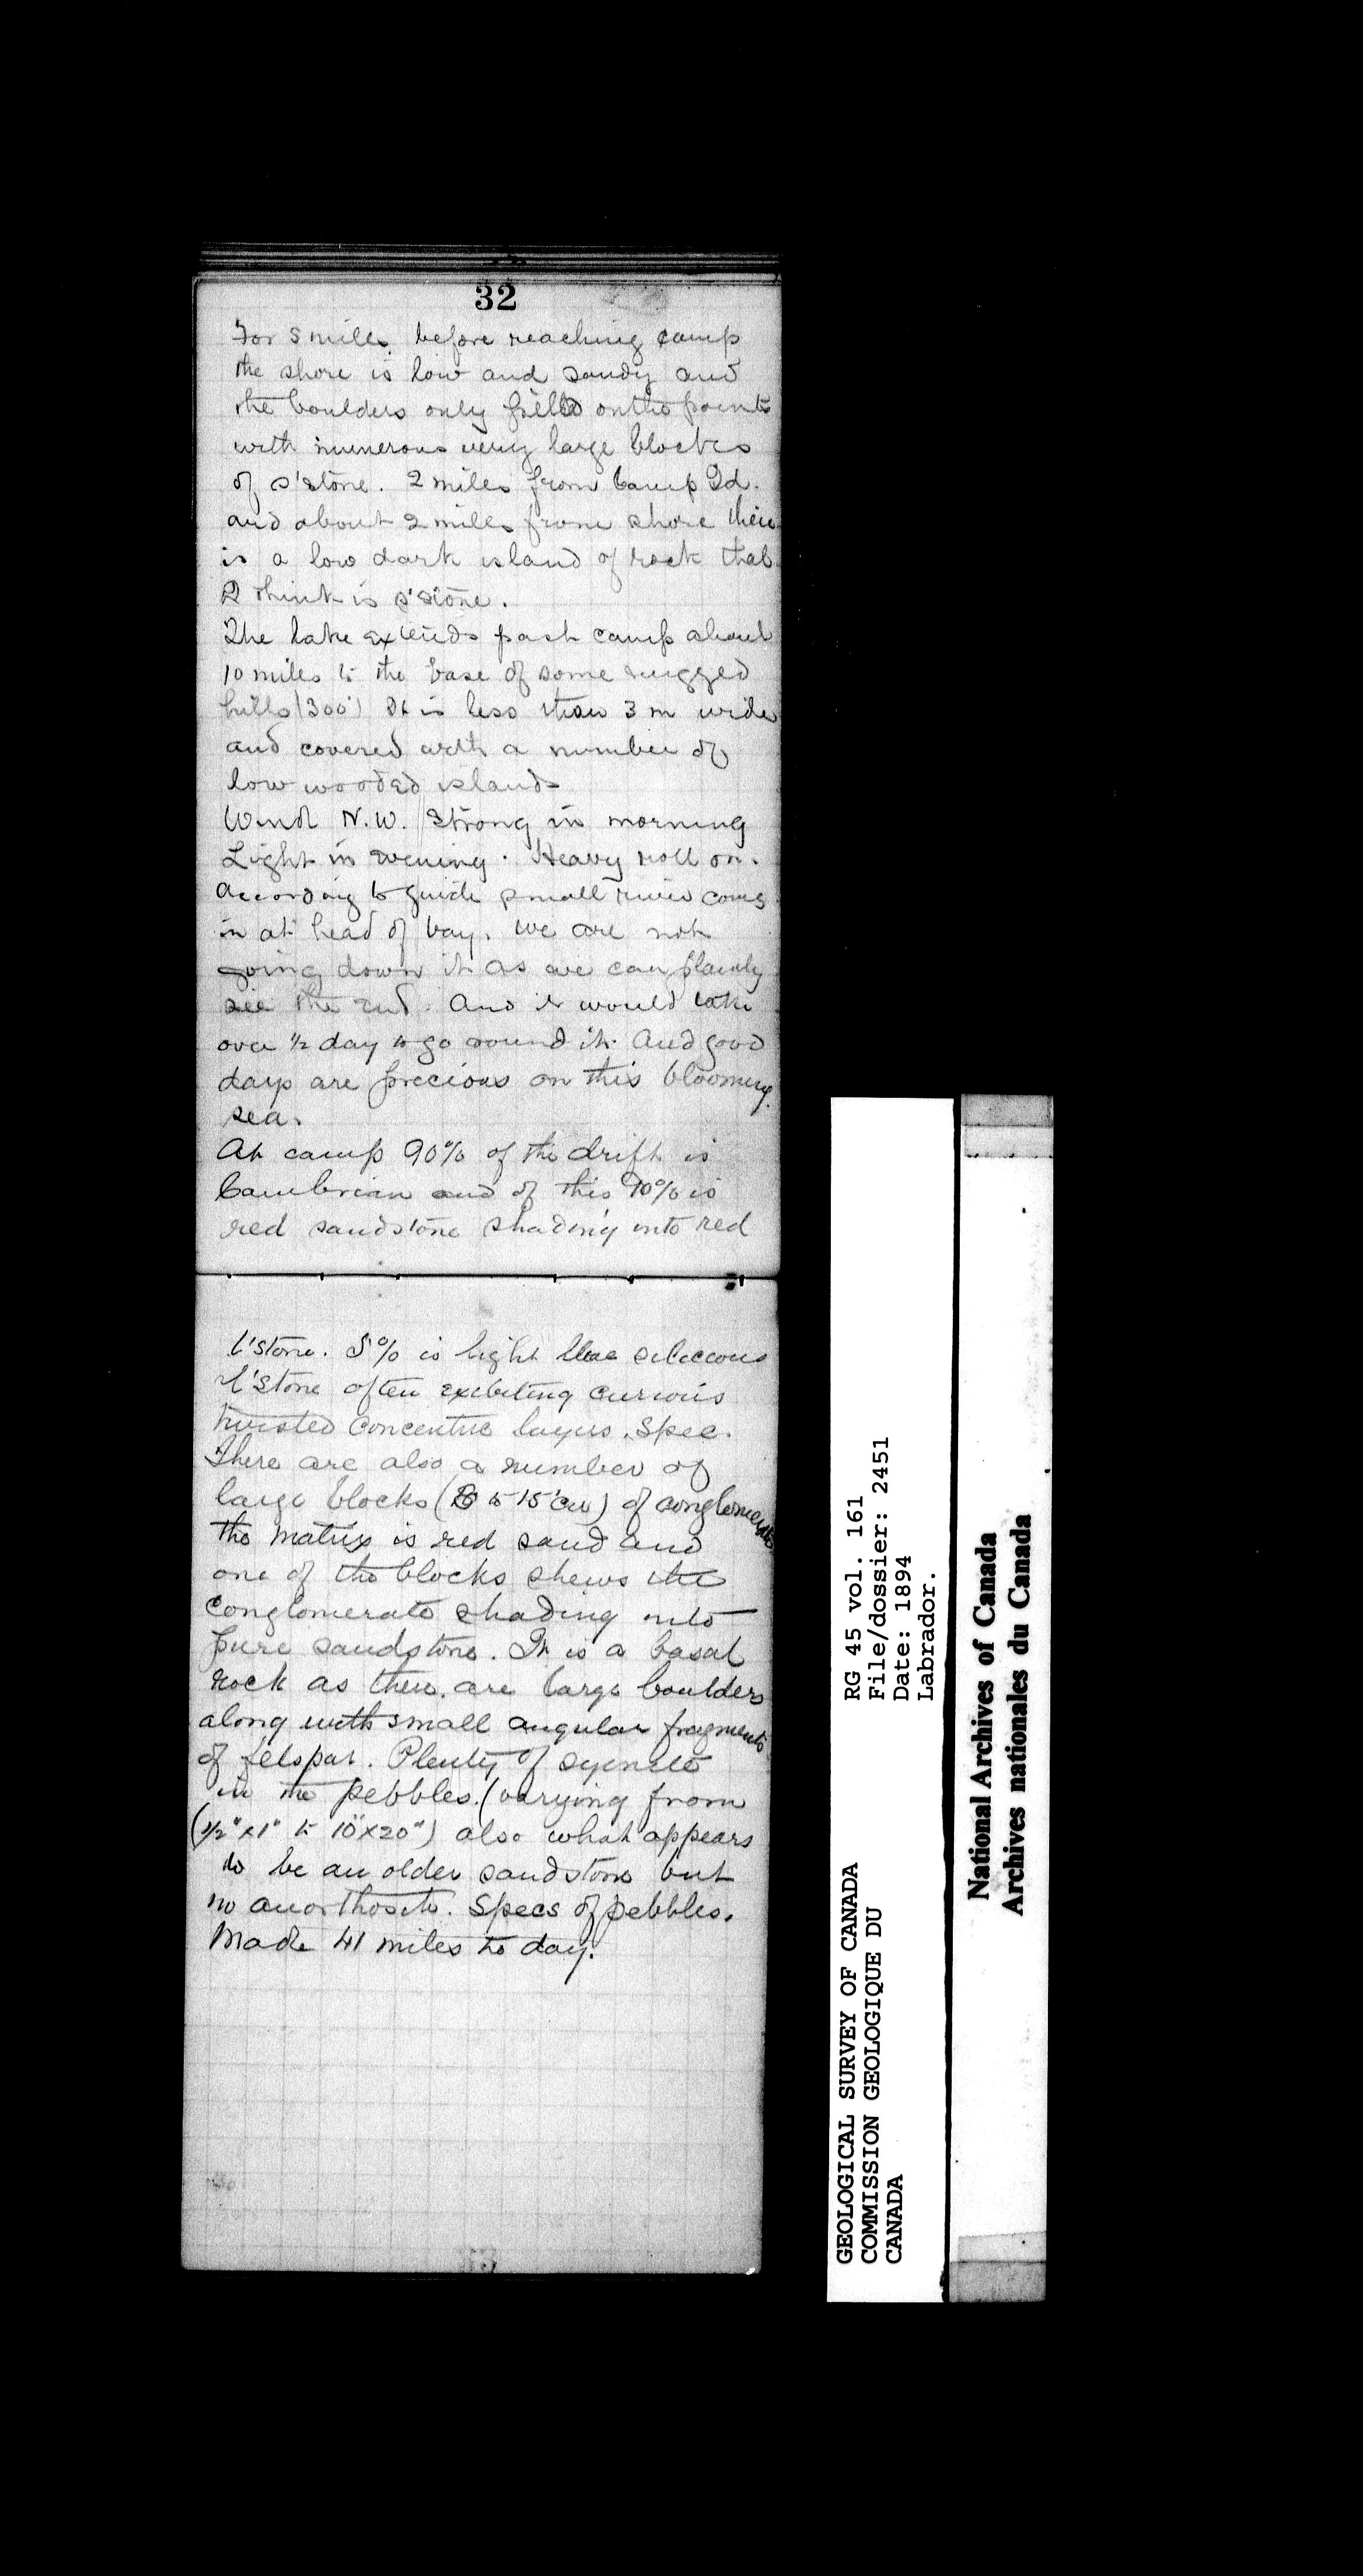 32
For 5 miles before reaching camp
the shore is low and sandy and
the boulders only piled on the points
with numerous very large blocks
of s'stone. 2 miles from Camp Id.
and about 2 miles from shore there
is a low dark island of rock that
I think is s'stone.
The lake extends past camp about
10 miles to the base of some rugged
hills (300') It is less than 3 m wide
and covered with a number of
low wooded islands
Wind N.W. Strong in morning
Light in evening. Heavy roll on.
According to guide small river comes
in at head of bay. We are not
going down it as we can plainly
see the end. And it would take
over ½ day to go round it. And good
days are precious on this blooming
sea.
At camp 90% of the drift is
Cambrian and of this 70% is
red sandstone shading into red
l'stone. 5% is light blue siliceous
l'stone often exibiting curious
twisted concentric layers. Spec.
There are also a number of
large blocks ( to 15' cu) of conglomerate
the matrix is red sand and
one of the blocks shews the
conglomerate shading into
pure sandstone. It is a basal
rock as there are large boulders
along with small angular fragments
of felspar. Plenty of syenite
in the pebbles. (varying from
(½"x1" to 10"x20") also what appears
to be an older sandstone but
no anorthosite. Specs of pebbles.
Made 41 miles to day.
GEOLOGICAL SURVEY OF CANADA
COMMISSION GEOLOGIQUE DU
CANADA
RG 45 vol. 161
File/dossier: 2451
Date: 1894
Labrador.
National Archives of Canada
Archives nationales du Canada